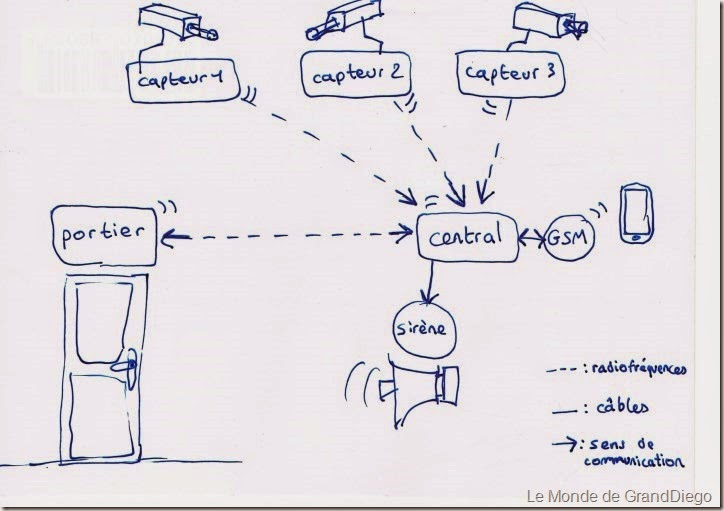 capteur 1
capteur 2
capteur 3
portier
central
GSM
sirène
: radiofréquences
: câbles
: sens de
communication
Le Monde de GrandDiego